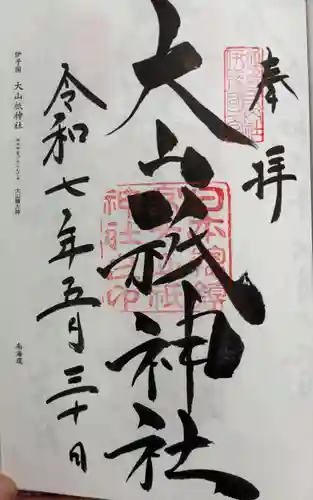 奉拝
大山祇神社
令和七年五月三十日
伊予国 大山祇神社
南海道